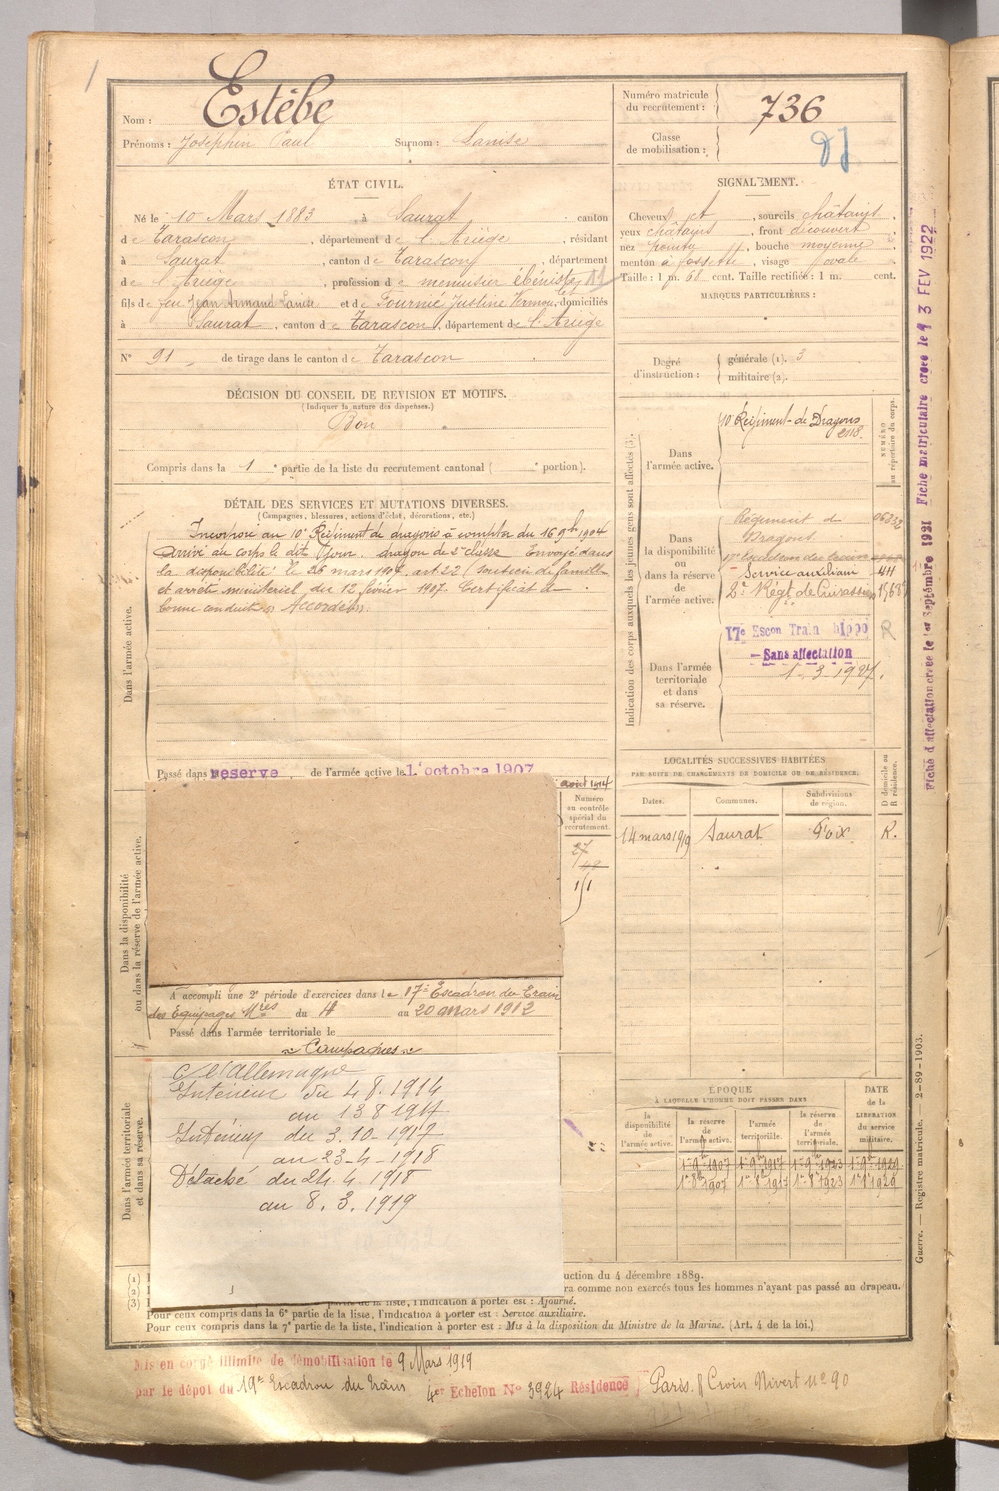 1
Nom : Estèbe
Prénoms : Josephin Paul Surnom : Lanise
Numéro matricule du recrutement : 736
Classe de mobilisation :
ÉTAT CIVIL.
Né le 10 Mars 1883, à Saurat, canton
de Tarascon, département de l'Ariège, résidant
à Saurat, canton de Tarascon, département
de l'Ariège, profession de menuisier ébéniste
fils de feu Jean Armand Lanise et de Fournié Justine, domiciliés
à Saurat, canton de Tarascon, département de l'Ariège
N° 91 de tirage dans le canton de Tarascon
SIGNALEMENT.
Cheveux et, sourcils châtains,
yeux châtains, front découvert
nez pointu, bouche moyenne
menton à fossette, visage ovale
Taille : 1 m. 68 cent. Taille rectifiée : 1 m. cent.
MARQUES PARTICULIÈRES :
Degré d'instruction : générale (1). 3
militaire (2).
DÉCISION DU CONSEIL DE REVISION ET MOTIFS.
(Indiquer la nature des dispenses.)
Bon
Compris dans la 1e partie de la liste du recrutement cantonal ( e portion).
DÉTAIL DES SERVICES ET MUTATIONS DIVERSES.
(Campagnes, blessures, actions d'éclat, décorations, etc.)
Dans l'armée active.
Incorporé au 10e Régiment de dragons à compter du 16 9bre 1904
Arrivé au corps le dit jour. dragon de 2e classe Envoyé dans
la disponibilité le 26 mars 1907. art 22 (soutien de famille
et arrêté ministériel du 12 février 1907. Certificat de
bonne conduite "Accordé".
Passé dans réserve de l'armée active le 1 octobre 1907
août 1914
Indication des corps auxquels les jeunes gens sont affectés (3).
NUMÉRO au répertoire du corps.
Dans l'armée active.
10e Régiment de Dragons
2118.
Dans la disponibilité ou dans la réserve de l'armée active.
Régiment de
Dragons
17e Escadron du train
Service auxiliaire 411
2e Régt de Cuirassiers
17e Escon Train hippo R
Sans affectation
1-3-1927.
Dans l'armée territoriale et dans sa réserve.
Dans la disponibilité ou dans la réserve de l'armée active.
Numéro au contrôle spécial du recrutement.
27
1/1
A accompli une 2e période d'exercices dans le 17e Escadron du Train
des Equipages Mres du 4 au 20 mars 1912
Passé dans l'armée territoriale le
Campagnes
Dans l'armée territoriale et dans sa réserve.
C l'Allemagne
Intérieur du 4 8. 1914
au 13 8 1917
Intérieur du 3. 10 - 1917
au 23-4-1918
Détaché du 24. 4. 1918
au 8. 3. 1919
LOCALITÉS SUCCESSIVES HABITÉES
PAR SUITE DE CHANGEMENTS DE DOMICILE OU DE RÉSIDENCE.
Dates. Communes. Subdivisions de région. D domicile ou R résidence.
14 mars 1919 Saurat Foix R.
ÉPOQUE
À LAQUELLE L'HOMME DOIT PASSER DANS
la disponibilité de l'armée active. la réserve de l'armée active. l'armée territoriale. la réserve de l'armée territoriale.
DATE de la LIBÉRATION du service militaire.
1er 9bre 1907 1er 9bre 1917 1er 9bre 1923 1er 9bre 1929
1er 8bre 1907 1er 8bre 1917 1er 8bre 1923 1er 8bre 1929
(1)
uction du 4 décembre 1889.
(2)
ra comme non exercés tous les hommes n'ayant pas passé au drapeau.
(3)
partie de la liste, l'indication à porter est : Ajourné.
Pour ceux compris dans la 6e partie de la liste, l'indication à porter est : Service auxiliaire.
Pour ceux compris dans la 7e partie de la liste, l'indication à porter est : Mis à la disposition du Ministre de la Marine. (Art. 4 de la loi.)
Mis en congé illimité de démobilisation le 9 Mars 1919
par le dépôt du 19e Escadron du train 4er Echelon N° 3924 Résidence Paris. R Croix Nivert n° 90
Guerre. — Registre matricule. — 2-89-1903.
Fiche d affectation créée le 1er Septembre 1921 Fiche matriculaire créée le 3 FEV 1922